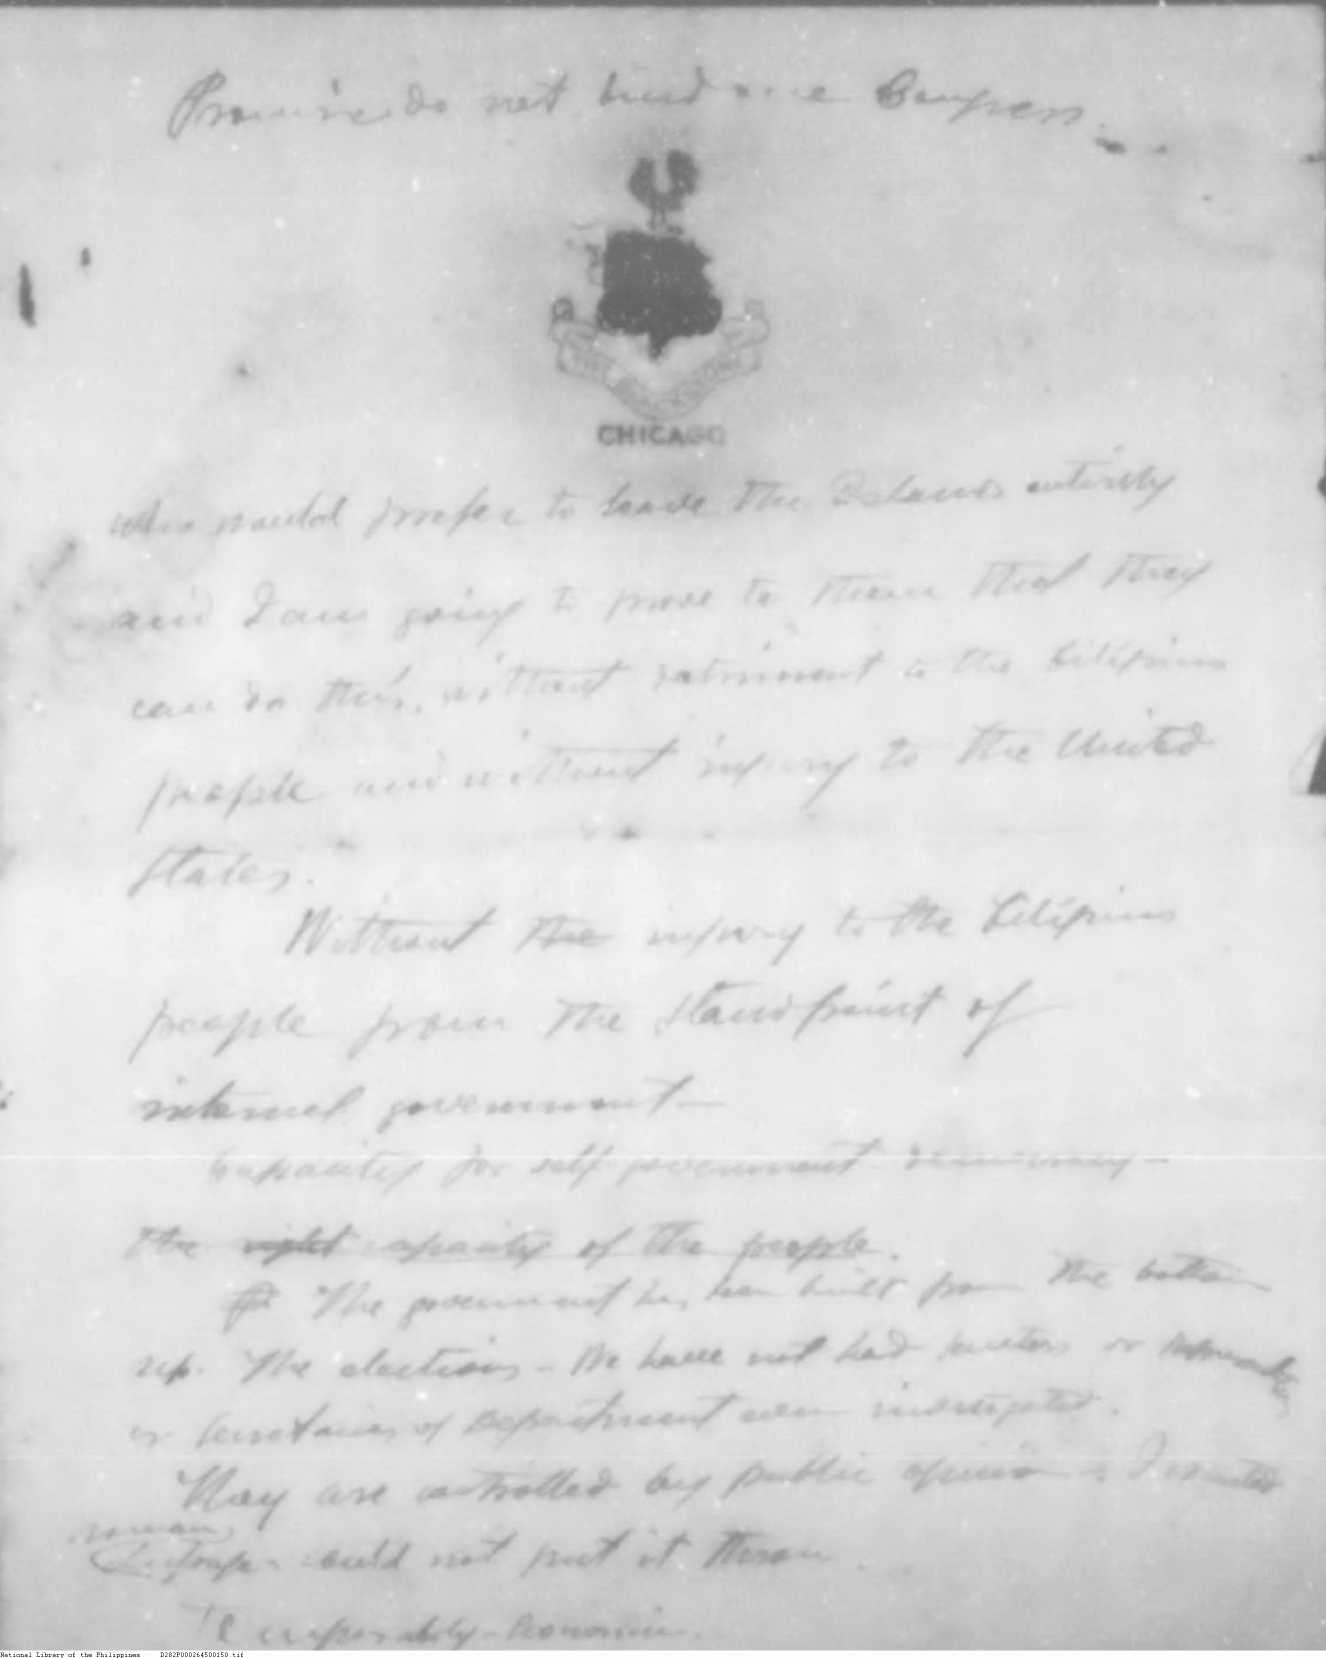 Promise do not bind one Congress.
THE BLACKSTONE
CHICAGO
who would prefer to leave the Islands entirely
and I am going to prove to them that they
can do this, without detriment to the Filipino
people and without injury to the United
States.
Without the injury to the Filipino
people from the standpoint of
internal government —
Capacity for self government democracy —
the right capacity of the people.
The government has been built from the bottom
up. The elections - We have not had senators or
or Secretaries of Department even investigated.
They are controlled by public opinion - I
woman could not put it thru.
Economic.
National Library of the Philippines D282P000264500150.tif